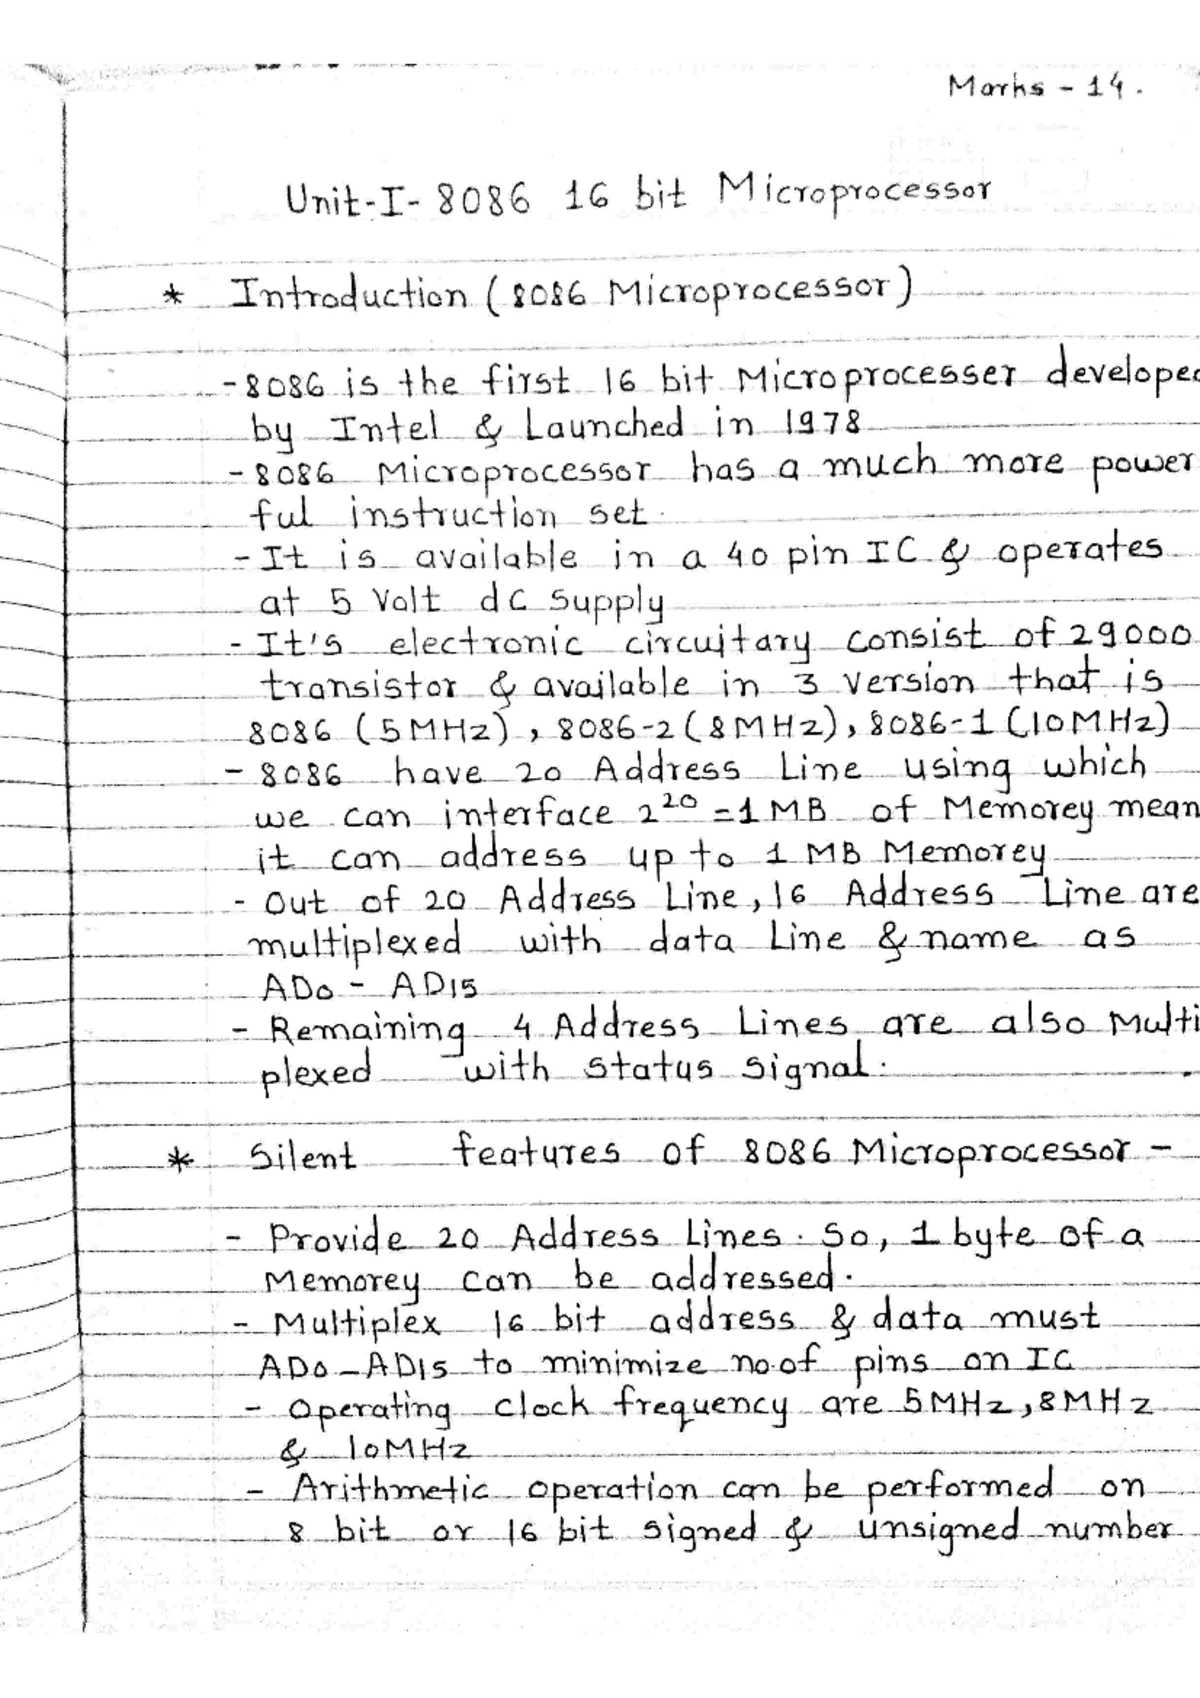 Marks - 14.
Unit-I- 8086 16 bit Microprocessor
* Introduction (8086 Microprocessor)
- 8086 is the first 16 bit Microprocesser developed
by Intel & Launched in 1978
- 8086 Microprocessor has a much more power
ful instruction set.
- It is available in a 40 pin IC & operates
at 5 Volt dc supply
- It's electronic circuitary consist of 29000
transistor & available in 3 version that is
8086 (5MHz), 8086-2 (8MHz), 8086-1 (10MHz)
- 8086 have 20 Address Line using which
we can interface 2²⁰ = 1 MB of Memorey mean
it can address up to 1 MB Memorey
- Out of 20 Address Line, 16 Address Line are
multiplexed with data Line & name as
AD0 - AD15
- Remaining 4 Address Lines are also Multi
plexed with status signal.
* Silent features of 8086 Microprocessor -
- Provide 20 Address Lines. So, 1 byte of a
Memorey can be addressed.
- Multiplex 16 bit address & data must
AD0-AD15 to minimize no.of pins on IC
- Operating clock frequency are 5MHz, 8MHz
& 10MHz
- Arithmetic operation can be performed on
8 bit or 16 bit signed & unsigned number